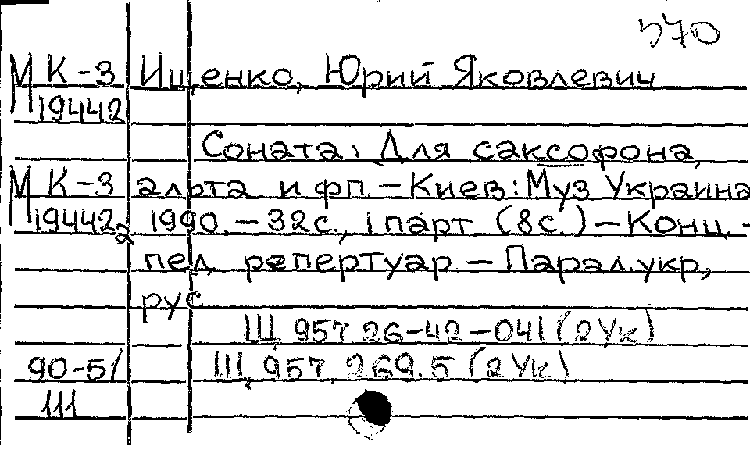 570
М К-3 Ищенко, Юрий Яковлевич
19442
Соната: Для саксофона
М К-3 альта и фп. – Киев: Муз Украина
19442₂ 1990. – 32с., 1 парт (8с.) – Конц.-
пед репертуар – Парал. укр,
рус
Щ 957 26-42-041 (2Ук)
90-5/ Щ 957.269.5 (2Ук)
111